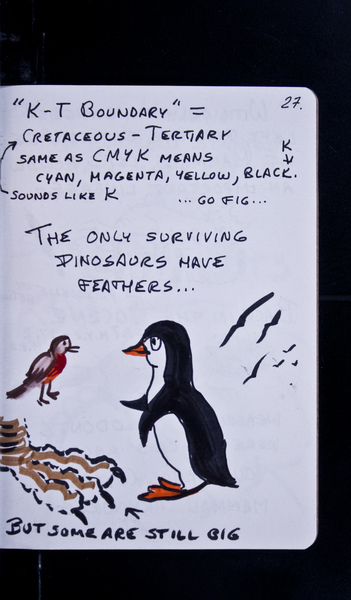 27.
"K-T BOUNDARY" =
CRETACEOUS - TERTIARY
SAME AS CMYK MEANS
K
CYAN, MAGENTA, YELLOW, BLACK.
SOUNDS LIKE K
... GO FIG...
THE ONLY SURVIVING
DINOSAURS HAVE
FEATHERS...
BUT SOME ARE STILL BIG